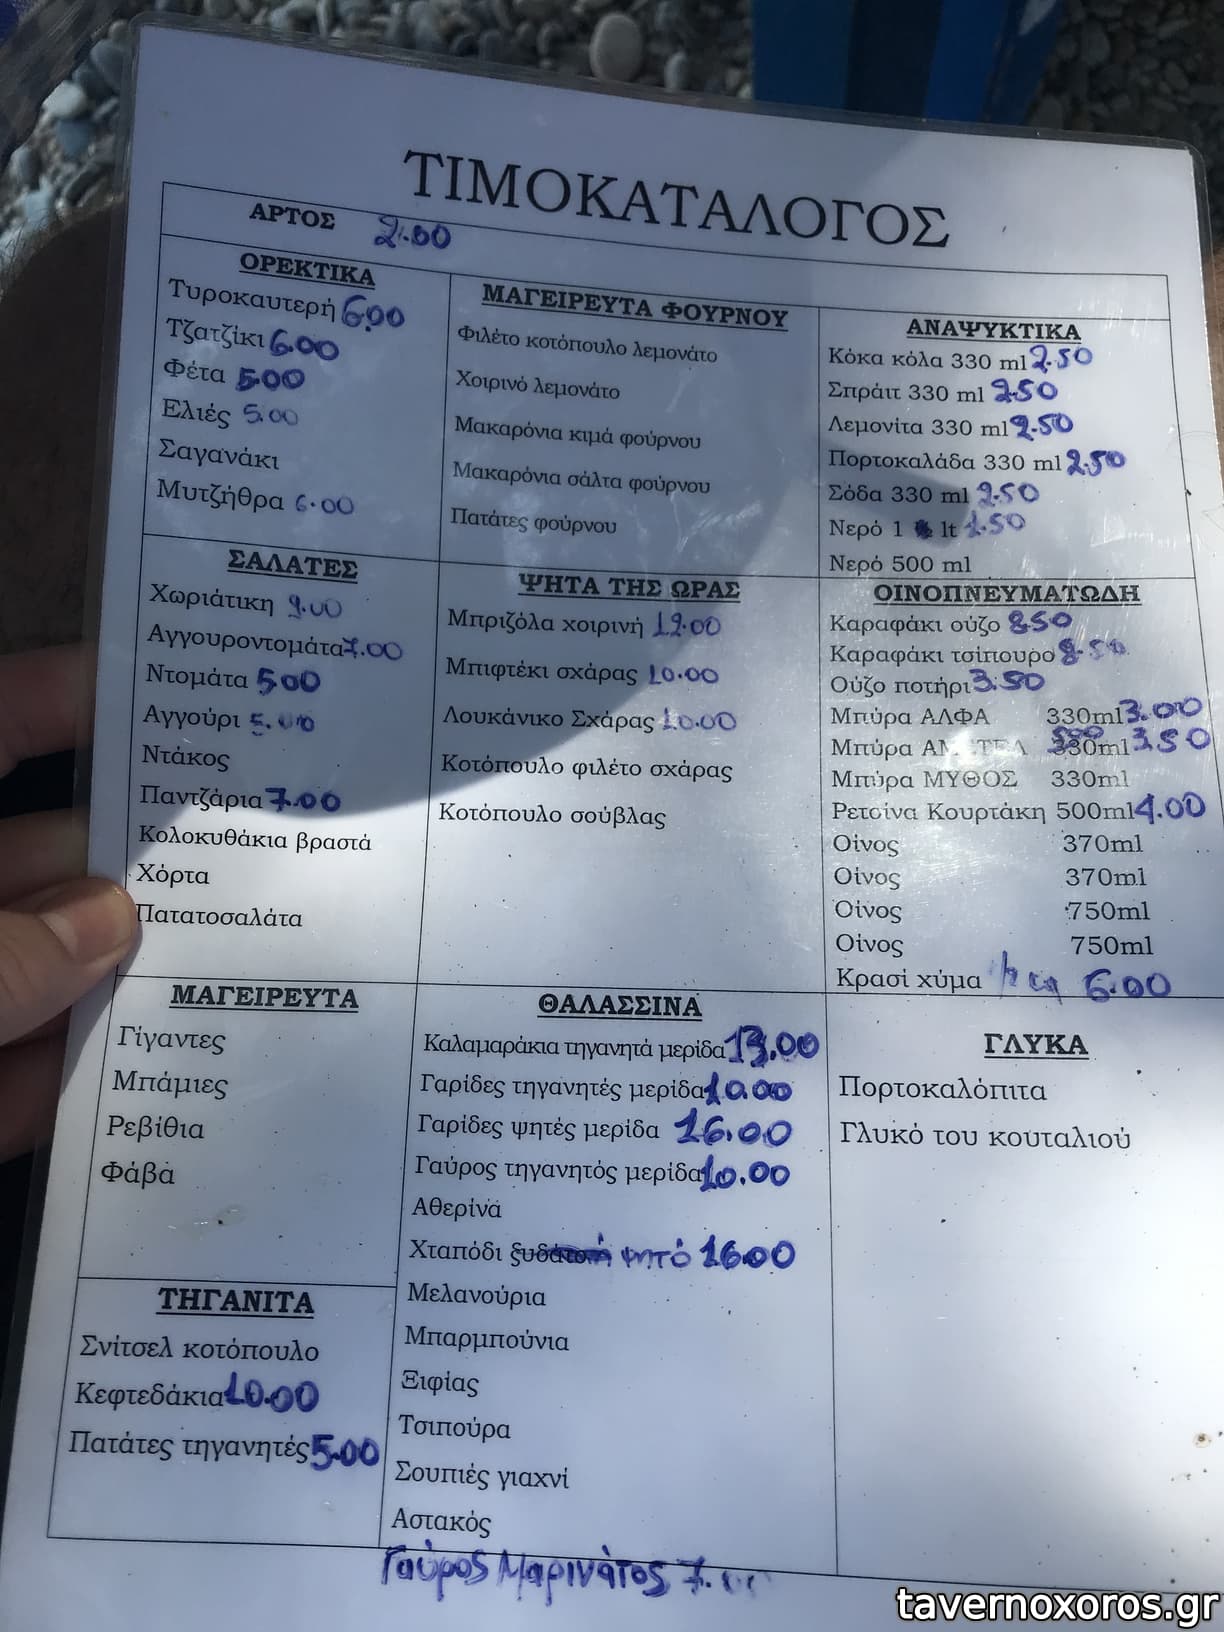 ΤΙΜΟΚΑΤΑΛΟΓΟΣ
ΑΡΤΟΣ 2.00
ΟΡΕΚΤΙΚΑ
Τυροκαυτερή 6.00
Τζατζίκι 6.00
Φέτα 5.00
Ελιές 5.00
Σαγανάκι
Μυτζήθρα 6.00
ΜΑΓΕΙΡΕΥΤΑ ΦΟΥΡΝΟΥ
Φιλέτο κοτόπουλο λεμονάτο
Χοιρινό λεμονάτο
Μακαρόνια κιμά φούρνου
Μακαρόνια σάλτα φούρνου
Πατάτες φούρνου
ΑΝΑΨΥΚΤΙΚΑ
Κόκα κόλα 330 ml 2.50
Σπράιτ 330 ml 2.50
Λεμονίτα 330 ml 2.50
Πορτοκαλάδα 330 ml 2.50
Σόδα 330 ml 2.50
Νερό 1 lt 1.50
Νερό 500 ml
ΣΑΛΑΤΕΣ
Χωριάτικη 9.00
Αγγουροντομάτα 7.00
Ντομάτα 5.00
Αγγούρι 5.00
Ντάκος
Παντζάρια 7.00
Κολοκυθάκια βραστά
Χόρτα
Πατατοσαλάτα
ΨΗΤΑ ΤΗΣ ΩΡΑΣ
Μπριζόλα χοιρινή 12.00
Μπιφτέκι σχάρας 10.00
Λουκάνικο Σχάρας 10.00
Κοτόπουλο φιλέτο σχάρας
Κοτόπουλο σούβλας
ΟΙΝΟΠΝΕΥΜΑΤΩΔΗ
Καραφάκι ούζο 8.50
Καραφάκι τσίπουρο 8.50
Ούζο ποτήρι 3.50
Μπύρα ΑΛΦΑ 330ml 3.00
Μπύρα 500 330ml 3.50
Μπύρα ΜΥΘΟΣ 330ml
Ρετσίνα Κουρτάκη 500ml 4.00
Οίνος 370ml
Οίνος 370ml
Οίνος 750ml
Οίνος 750ml
Κρασί χύμα 6.00
ΜΑΓΕΙΡΕΥΤΑ
Γίγαντες
Μπάμιες
Ρεβίθια
Φάβα
ΤΗΓΑΝΙΤΑ
Σνίτσελ κοτόπουλο
Κεφτεδάκια 10.00
Πατάτες τηγανητές 5.00
ΘΑΛΑΣΣΙΝΑ
Καλαμαράκια τηγανητά μερίδα 13.00
Γαρίδες τηγανητές μερίδα 10.00
Γαρίδες ψητές μερίδα 16.00
Γαύρος τηγανητός μερίδα 10.00
Αθερίνα
Χταπόδι ψητό 16.00
Μελανούρια
Μπαρμπούνια
Ξιφίας
Τσιπούρα
Σουπιές γιαχνί
Αστακός
Γαύρος Μαρινάτος 7.00
ΓΛΥΚΑ
Πορτοκαλόπιτα
Γλυκό του κουταλιού
tavernoxoros.gr